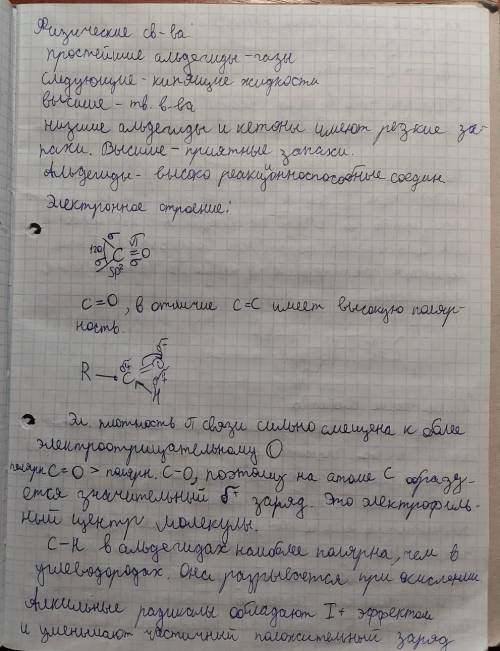 Физические св-ва
простейшие альдегиды - газы
следующие - кипящие жидкости
высшие - тв. в-ва
низшие альдегиды и кетоны имеют резкие за-
пахи. Высшие - приятные запахи.
Альдегиды - высоко реакционноспособные соедин
Электронное строение:
σ π
120 C = O
σ σ
sp²
C=O, в отличие C=C имеет высокую поляр-
ность.
R → C = O
H
Эл. плотность π связи сильно смещена к более
электроотрицательному O
полярн. C=O > полярн. C-O, поэтому на атоме C образу-
ется значительный δ+ заряд. Это электрофиль-
ный центр молекулы.
C-H в альдегидах наиболее полярна, чем в
углеводородах. Она разрывается при окислении
Алкильные радикалы обладают I+ эффектом
и уменьшают частичный положительный заряд